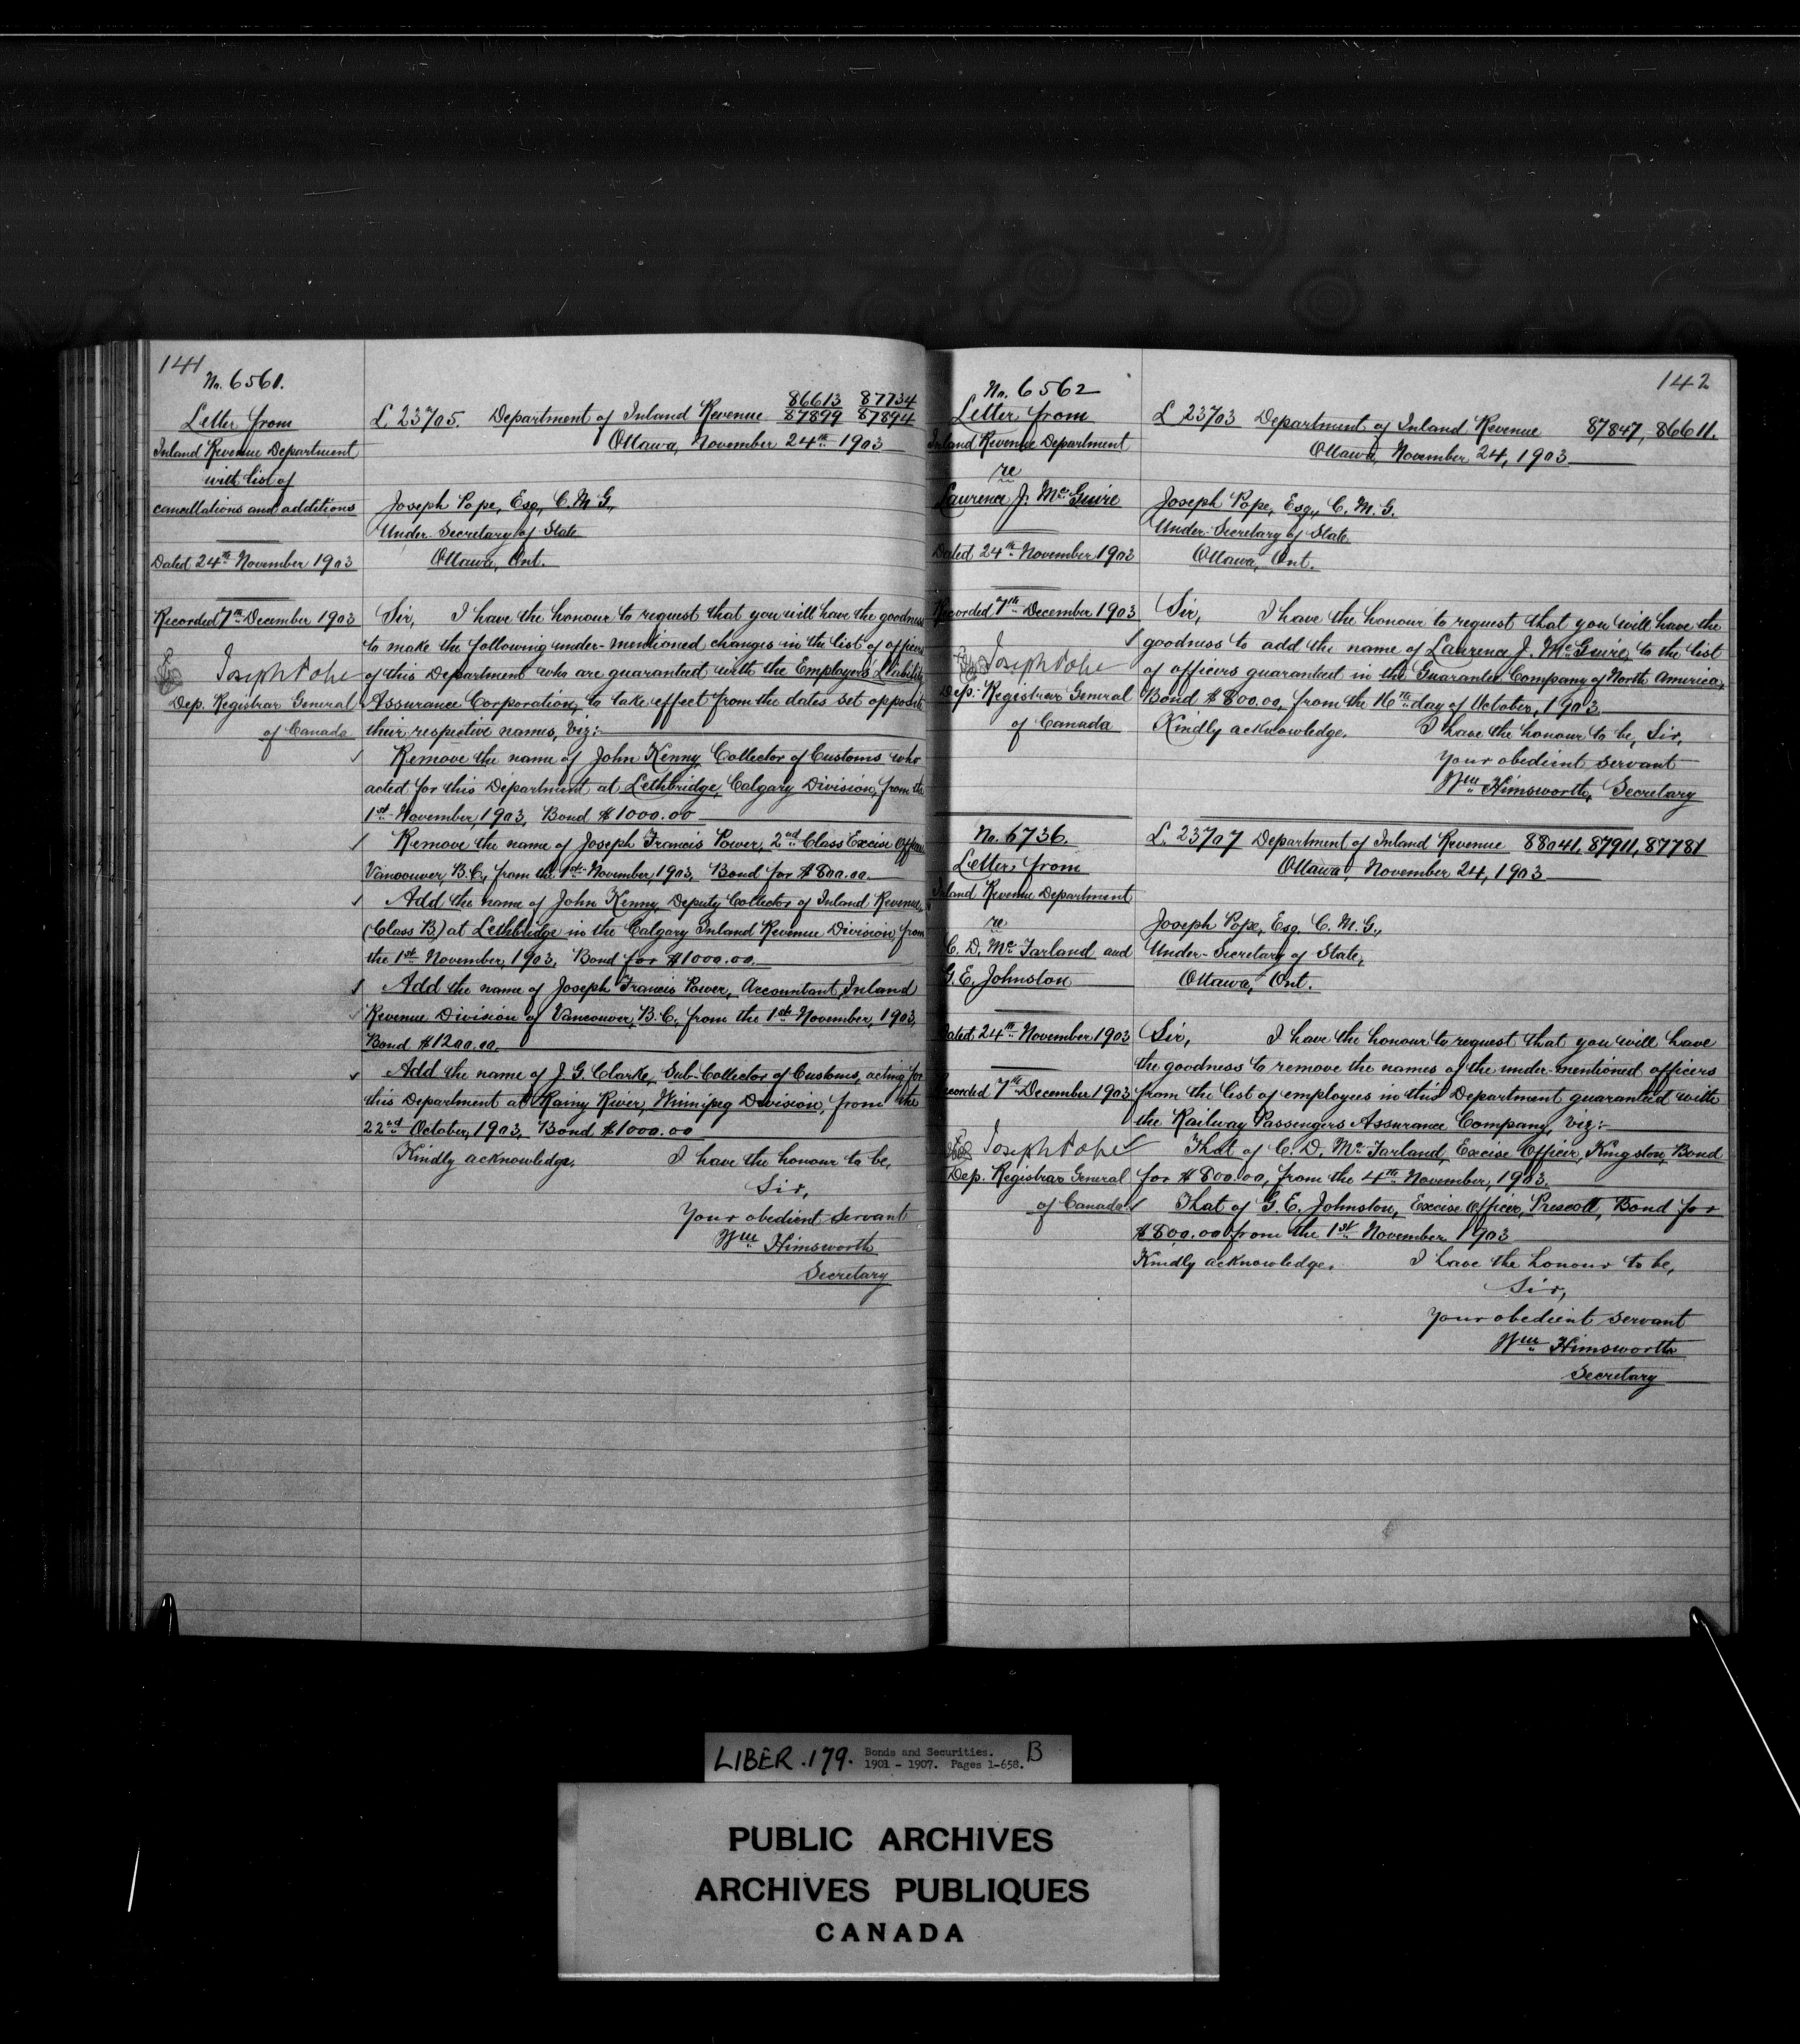 141
No. 6561.
Letter from
Inland Revenue Department
with list of
cancellations and additions
Dated 24th November 1903
Recorded 7th December 1903
Joseph Pope
Dep. Registrar General
of Canada
86613 87734
L 23705. Department of Inland Revenue 87899 87894
Ottawa, November 24th 1903
Joseph Pope, Esq., C.M.G.,
Under-Secretary of State
Ottawa, Ont.
Sir, I have the honour to request that you will have the goodness
to make the following under-mentioned changes in the list of officers
of this Department who are guaranteed with the Employers' Liability
Assurance Corporation, to take effect from the dates set opposite
their respective names, viz:-
Remove the name of John Kenny, Collector of Customs who
acted for this Department at Lethbridge, Calgary Division, from the
1st November, 1903. Bond $1000.00
Remove the name of Joseph Francis Power, 2nd Class Excise Officer
Vancouver, B.C., from the 1st November, 1903. Bond for $800.00.
Add the name of John Kenny, Deputy Collector of Inland Revenue,
(Class B) at Lethbridge in the Calgary Inland Revenue Division, from
the 1st November, 1903. Bond for $1000.00.
Add the name of Joseph Francis Power, Accountant, Inland
Revenue Division of Vancouver, B.C., from the 1st November, 1903,
Bond $1200.00.
Add the name of J. G. Clarke, Sub-Collector of Customs, acting for
this Department at Rainy River, Winnipeg Division, from the
22nd October, 1903. Bond $1000.00
Kindly acknowledge. I have the honour to be,
Sir,
Your obedient servant
Wm Himsworth
Secretary
142
No. 6562
Letter from
Inland Revenue Department
re
Laurence J. McGuire
Dated 24th November 1903
Recorded 7th December 1903
Joseph Pope
Dep. Registrar General
of Canada
L 23703 Department of Inland Revenue 87847, 86611.
Ottawa, November 24, 1903
Joseph Pope, Esq., C. M. G.
Under-Secretary of State
Ottawa, Ont.
Sir, I have the honour to request that you will have the
goodness to add the name of Laurence J. McGuire, to the list
of officers guaranteed in the Guarantee Company of North America,
Bond $800.00, from the 16th day of October, 1903.
Kindly acknowledge. I have the honour to be, Sir,
Your obedient servant
Wm Himsworth, Secretary
No. 6736.
Letter from
Inland Revenue Department
re
C. D. McFarland and
G. E. Johnston
Dated 24th November 1903
Recorded 7th December 1903
Joseph Pope
Dep. Registrar General
of Canada
L. 23707 Department of Inland Revenue 88041, 87911, 87781
Ottawa, November 24, 1903
Joseph Pope, Esq. C. M. G.,
Under-Secretary of State,
Ottawa, Ont.
Sir, I have the honour to request that you will have
the goodness to remove the names of the under-mentioned officers
from the list of employees in this Department guaranteed with
the Railway Passengers Assurance Company, viz:-
That of C. D. McFarland, Excise Officer, Kingston, Bond
for $800.00, from the 4th November, 1903.
That of G. E. Johnston, Excise Officer, Prescott, Bond for
$800.00 from the 1st November 1903
Kindly acknowledge. I have the honour to be,
Sir,
Your obedient servant
Wm Himsworth
Secretary
LIBER. 179. Bonds and Securities. B
1901 - 1907. Pages 1-658.
PUBLIC ARCHIVES
ARCHIVES PUBLIQUES
CANADA